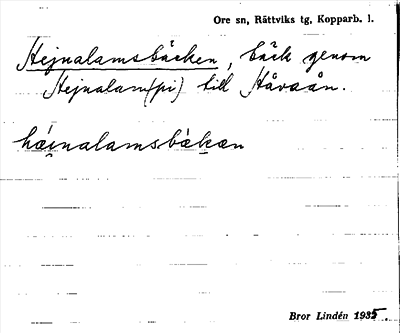 Ore sn, Rättviks tg, Kopparb. l.
Hejnalamsbäcken, bäck genom
Hejnalam(pi) till Håvaån.
hæi̯nalamsbæ̀kæn
Bror Lindén 1935.